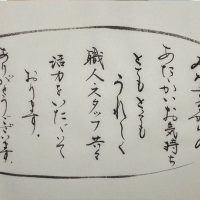 あたたかいお気持ち
とてもとても
うれしく
職人スタッフ共々
活力をいただいて
おります。
ありがとうございます。